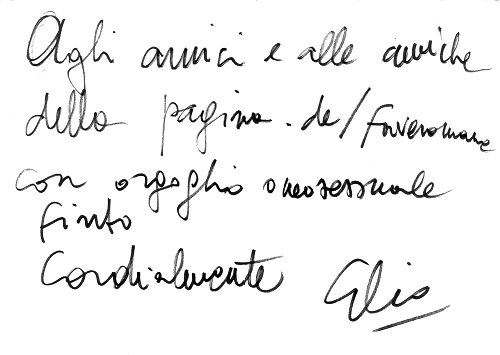 Agli amici e alle amiche
della pagina.de/
con orgoglio omosessuale
finto
Cordialmente Elio